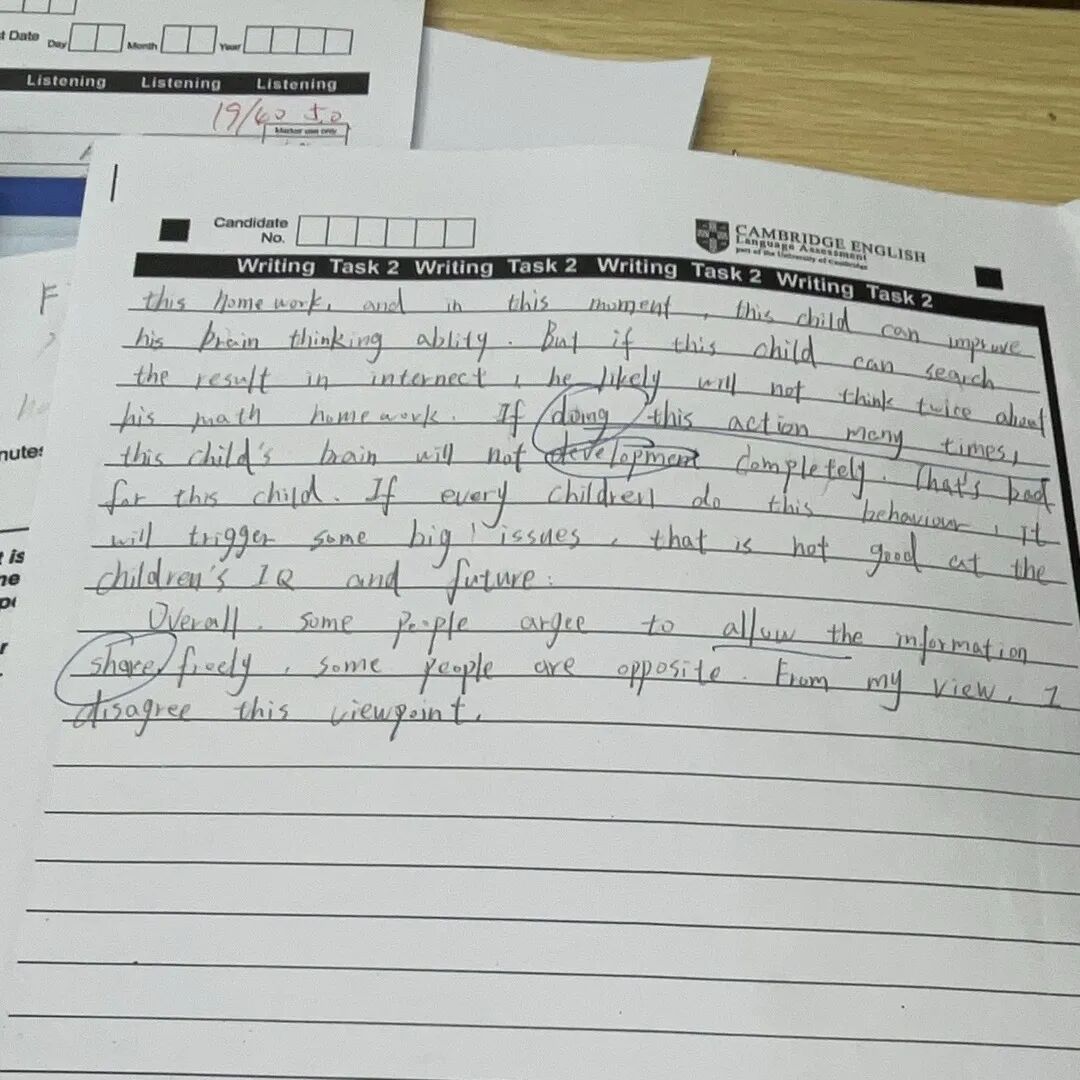 t Date Day Month Year
Listening Listening Listening
19/40 5.0
Marker use only
Candidate
No.
CAMBRIDGE ENGLISH
Language Assessment
part of the University of Cambridge
Writing Task 2 Writing Task 2 Writing Task 2 Writing Task 2
this homework, and in this moment, this child can improve
his brain thinking ablity. But if this child can search
the result in internect, he likely will not think twice about
his math homework. If doing this action many times,
this child's brain will not development completely. That's bad
for this child. If every children do this behaviour, it
will trigger some big issues, that is not good at the
children's IQ and future.
Overall, some people argee to allow the information
share freely, some people are opposite. From my view, I
disagree this viewpoint.
F
nutes
t is
ne